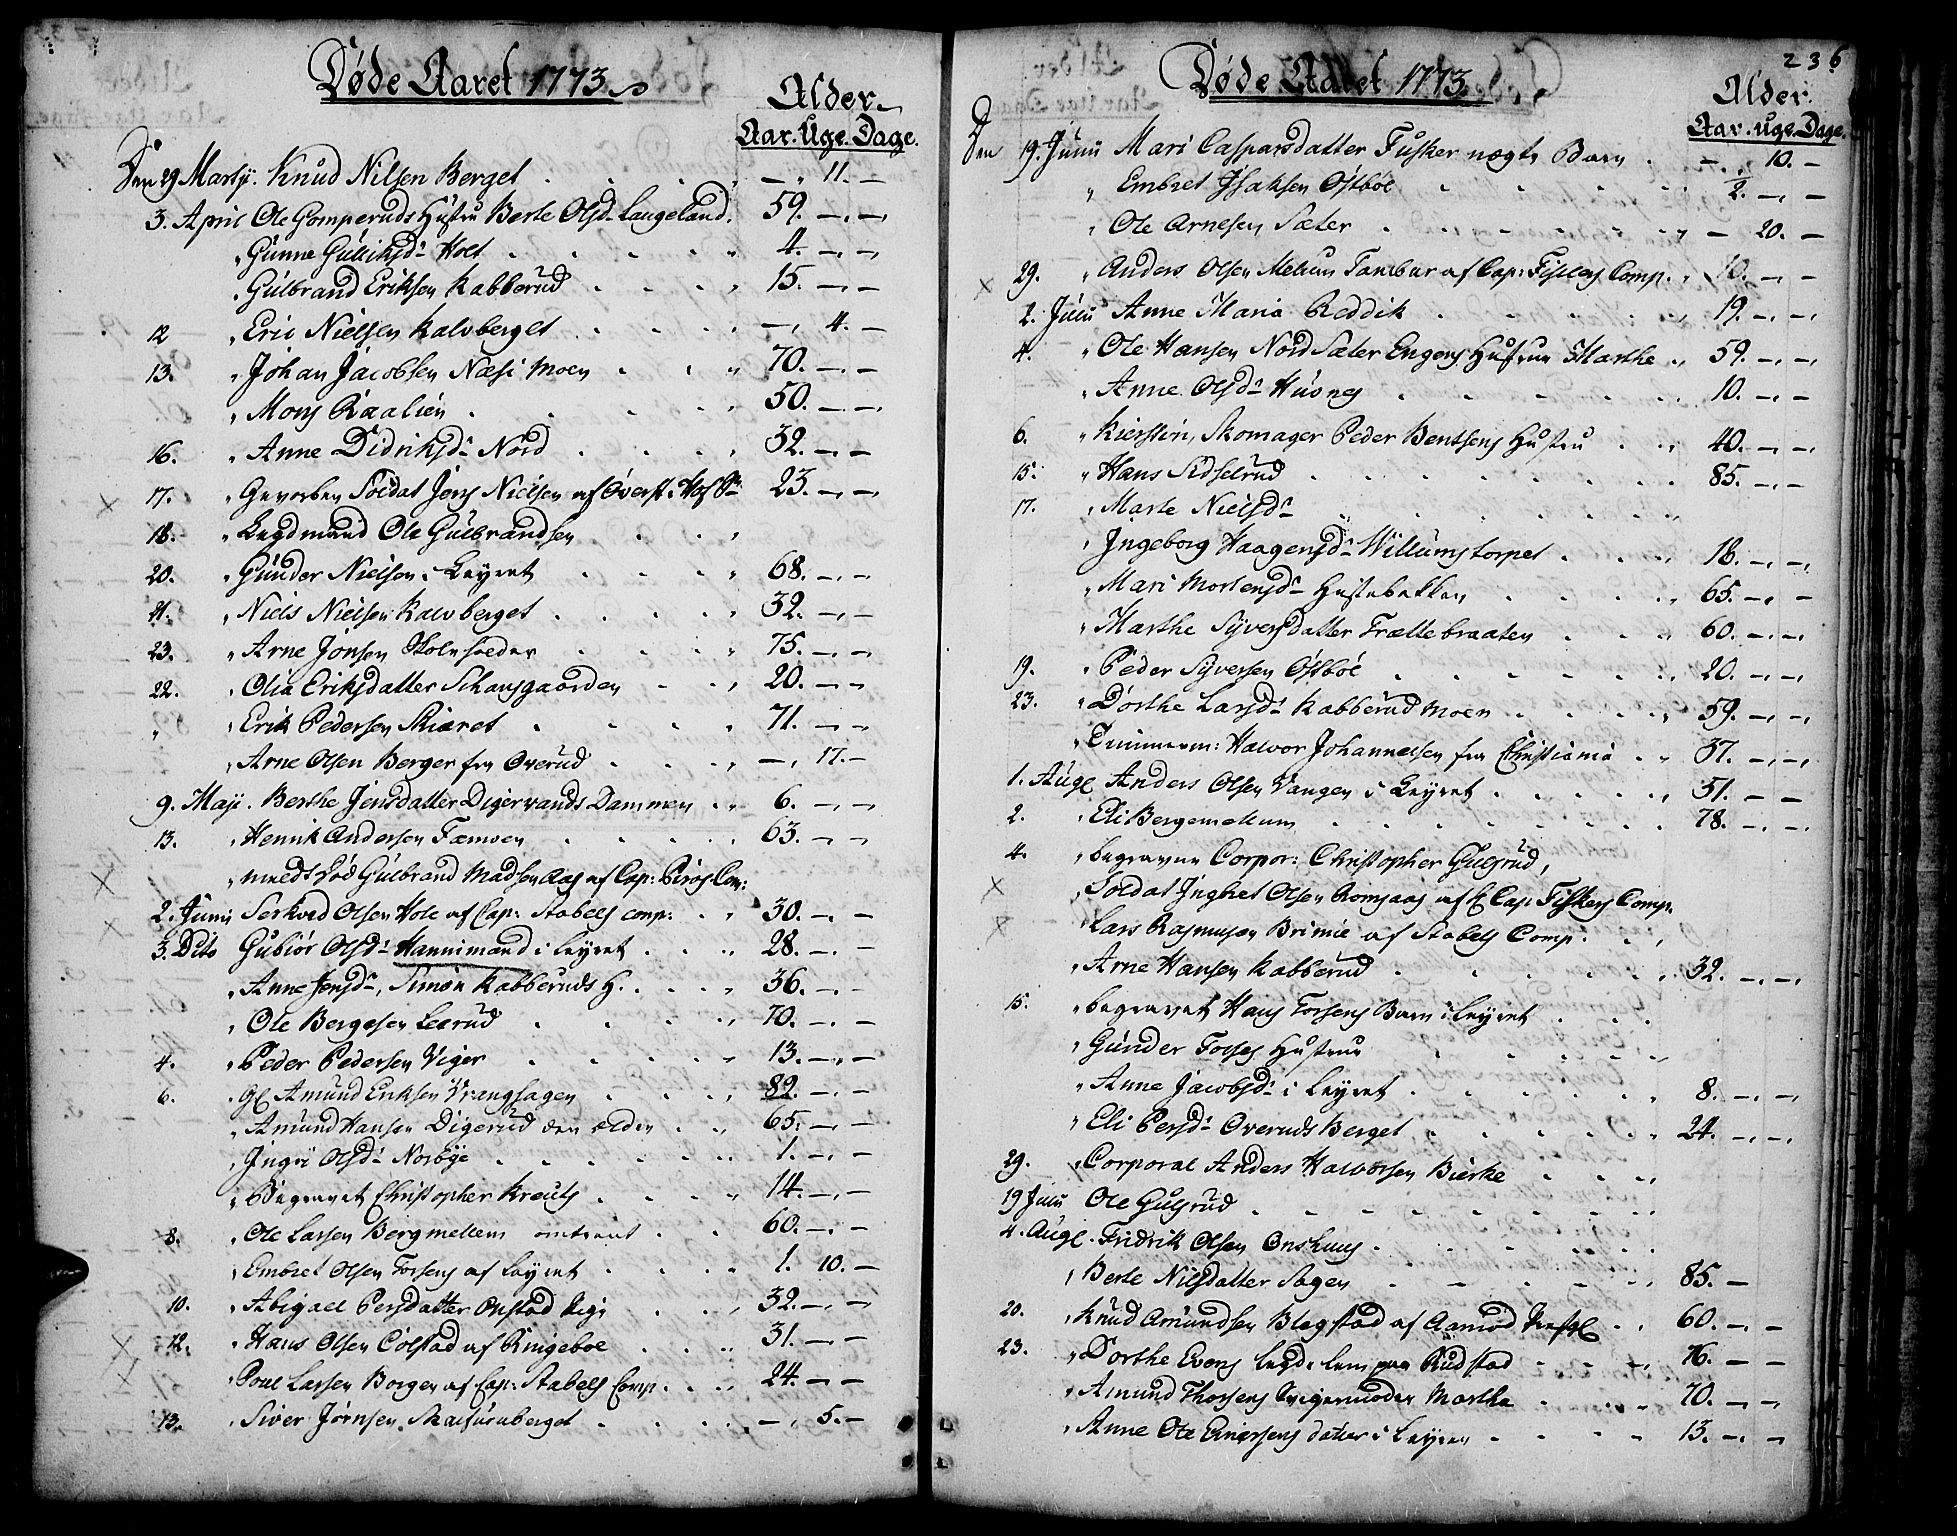 Døde Aaret 1773.
Alder.
Aar. Uge. Dage.
Den 29 Martij. Knud Nilsen Berget . . . . . — „ 11. —
3. April Ole Gomperuds Hustru Berte Olsd. Laugeland. 59. —. —.
„ Gunne Gulliksdr Holt . . . . „ 4. —. —.
„ Gulbrand Eriksen Kabberud . . . . „ 15. —. —.
12 „ Eric Nielsen Kalvberget . . . . „ —, 4. —
13. „ Johan Jacobsen Næsi Moen . . . „ 70. —. —
„ Mons Raalien . . . . „ 50. —. —.
16. „ Anne Didriksdr Nord . . . . „ 32. —. —
17. „ Gevorben Soldat Jens Nielsen af Øverst. 23. —. —.
18. „ Legdmand Ole Gulbrandsen . . . „
20. „ Gunder Nielsen i Leyret . . . . „ 68. —. —
21. „ Niels Nielsen Kalvberget . . . . „ 32. —. —
23. „ Arne Jonsen Skoleholder . . . . „ 75. —. —
22. „ Olia Eriksdatter Schansgaarden . . „ 20. —. —
„ „ Erik Pedersen Skiæret . . . . „ 71. — —
„ Arne Olsen Berger fra Overud . . . „ —, 17. —
9. Maji. Berthe Jensdatter Digervands Dammen . „ 6. — —
13. „ Henrik Andersen Fæmoen . . . . „ 63. — —
„ Gulbrand Madsen Aas af Cap: Com:
2. Junii Serkved Olsen Hole af Cap: Stabels Comp: . „ 30. —. —
3. Dito Gubiør Olsdr Hannimand i Leyret . . . „ 28. —.
„ Anne Jensdr, Simon Kabberuds H. . . . „ 36. —. —
„ Ole Bergesen Leerud . . . . „ 70. —. —
4. „ Peder Pedersen Viger . . . . „ 13. —. —
6. „ Gl Amund Eriksen Vrangsagen . . . „ 82. —. —
„ Amund Hansen Digerud den ældre . . „ 65. —. —
„ Ingri Olsdr Norbye . . . . . „ 1. —. —
„ Begravet Christopher Kreutz . . . „ 14. —. —
8. „ Ole Larsen Bergmellem omtrent . . 60. —. —
„ Embret Olsen Forsens af Leyret . . . „ 1. 10. —
10. „ Abigael Persdatter Onstad . . „ 32. —. —
12. „ Hans Olsen Colstad af Ringeboe . . . „ 31. — —
Poul Larsen Borgen af Cap: Stabels Comp. . . „ 24. — —
13. „ Siver Jørnsen Skasureberget . . . . —, 5. —
236
Døde Aaret 1773.
Alder.
Aar. Uge. Dage.
Den 19. Junii Mari Casparsdatter Fusker uægte Barn . —. 10. —
„ Embret Isaksen Østbøe . . . . . ½. —. —
„ Ole Arnesen Sæter . . . . . „ — 20. —
29. „ Anders Olsen Melum Tambur af Cap: Fiskers Comp. „ 10. —. —
2. Julii Anne Maria Reddik . . . . . 19. —. —.
4. „ Ole Hansen Nord Sæter Engens Hustrue Marthe „ 59. —. —.
„ Anne Olsdr Husnes . . . . . 10. —. —
6. „ Kierstin, Skomager Peder Bentsens Hustru . „ 40. —. —
15. „ Hans Sidselrud . . . . . . . 85. —. —
17. „ Marte Nielsdr . . . . . . „
„ Ingeborg Haagensdr Willumstorpet . . „ 18. —. —
„ Mari Mortensdr Hustebakken . . . „ 65. —. —
„ Marthe Syversdatter Trættebraaten . . „ 60. —. —.
19. „ Peder Syversen Østbøe . . . . . 20. —. —.
23. „ Dorthe Larsdr Kabberud Moen . . . „ 59. —. —.
„ Tømmerm: Halvor Johannesen fra Christiania . „ 37. —. —.
1. Augl Anders Olsen Vangen i Leyret . . . „ 51. — —
2. „ Eli Bergemellum . . . . . . . 78. —. —.
4. „ begraven Corpor: Christopher Gulsrud,
„ Soldat Inghret Olsen Romsaas af Cap: Fiskers Comp.
„ Lars Rasmusen Brimie af Stabels Comp: . . ,
„ Arne Hansen Kabberud . . . . . „ 32. —. —.
15. „ begravet Hans Torsens Barn i Leyret . . .
„ Gunder Hustrue . . . . „
„ Anne Jacobsdr i Leyret . . . . . „ 8. —. —.
„ Eli Persdr Overuds Berget . . . . „ 24. —. —.
29. „ Corporal Anders Halvorsen Bierke . . . „
19 Julii Ole Gulsrud . . . . . . . . „
4. Augl. Fridrik Olsen Onshuus . . . . . .
„ Berte Nilsdatter Sagen . . . . . „ 85. —
20. „ Knud Amundsen Blegstad af Aamod Præstl . . 60. —. —
23. „ Dorthe Evens Legds lem paa Rudstad . . . „ 76. — —
„ Amund Thorsens Svigermoder Marthe . . „ 70. —. —
„ Anne Ole Einersens datter i Leyren . . . 13. —. —